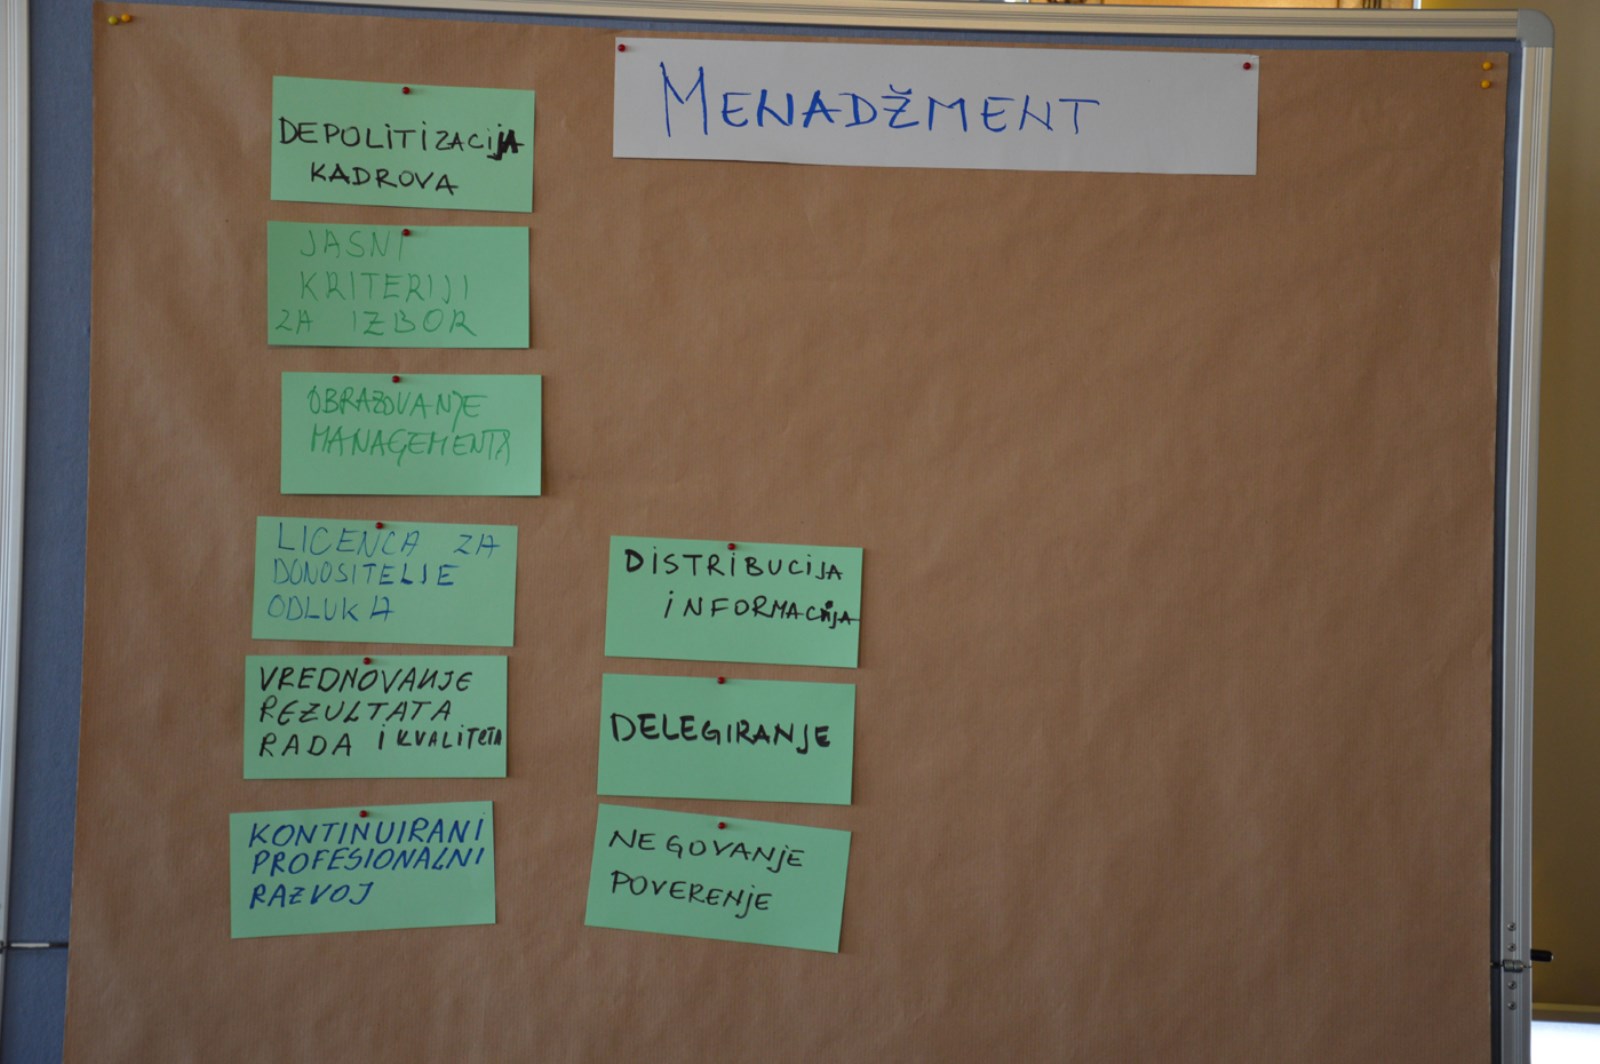 MENADŽMENT
DEPOLITIZACIJA
KADROVA
JASNI
KRITERIJI
ZA IZBOR
OBRAZOVANJE
MANAGEMENTA
LICENCA ZA
DONOSITELJE
ODLUKA
VREDNOVANJE
REZULTATA
RADA I KVALITETA
KONTINUIRANI
PROFESIONALNI
RAZVOJ
DISTRIBUCIJA
INFORMACIJA
DELEGIRANJE
NEGOVANJE
POVERENJE